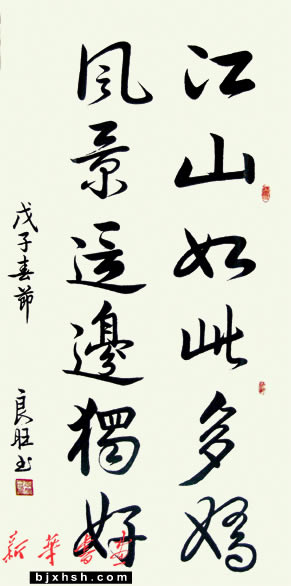 江山如此多嬌
風景這邊獨好
戊子春節
良旺书
新華書畫
www.bjxhsh.com